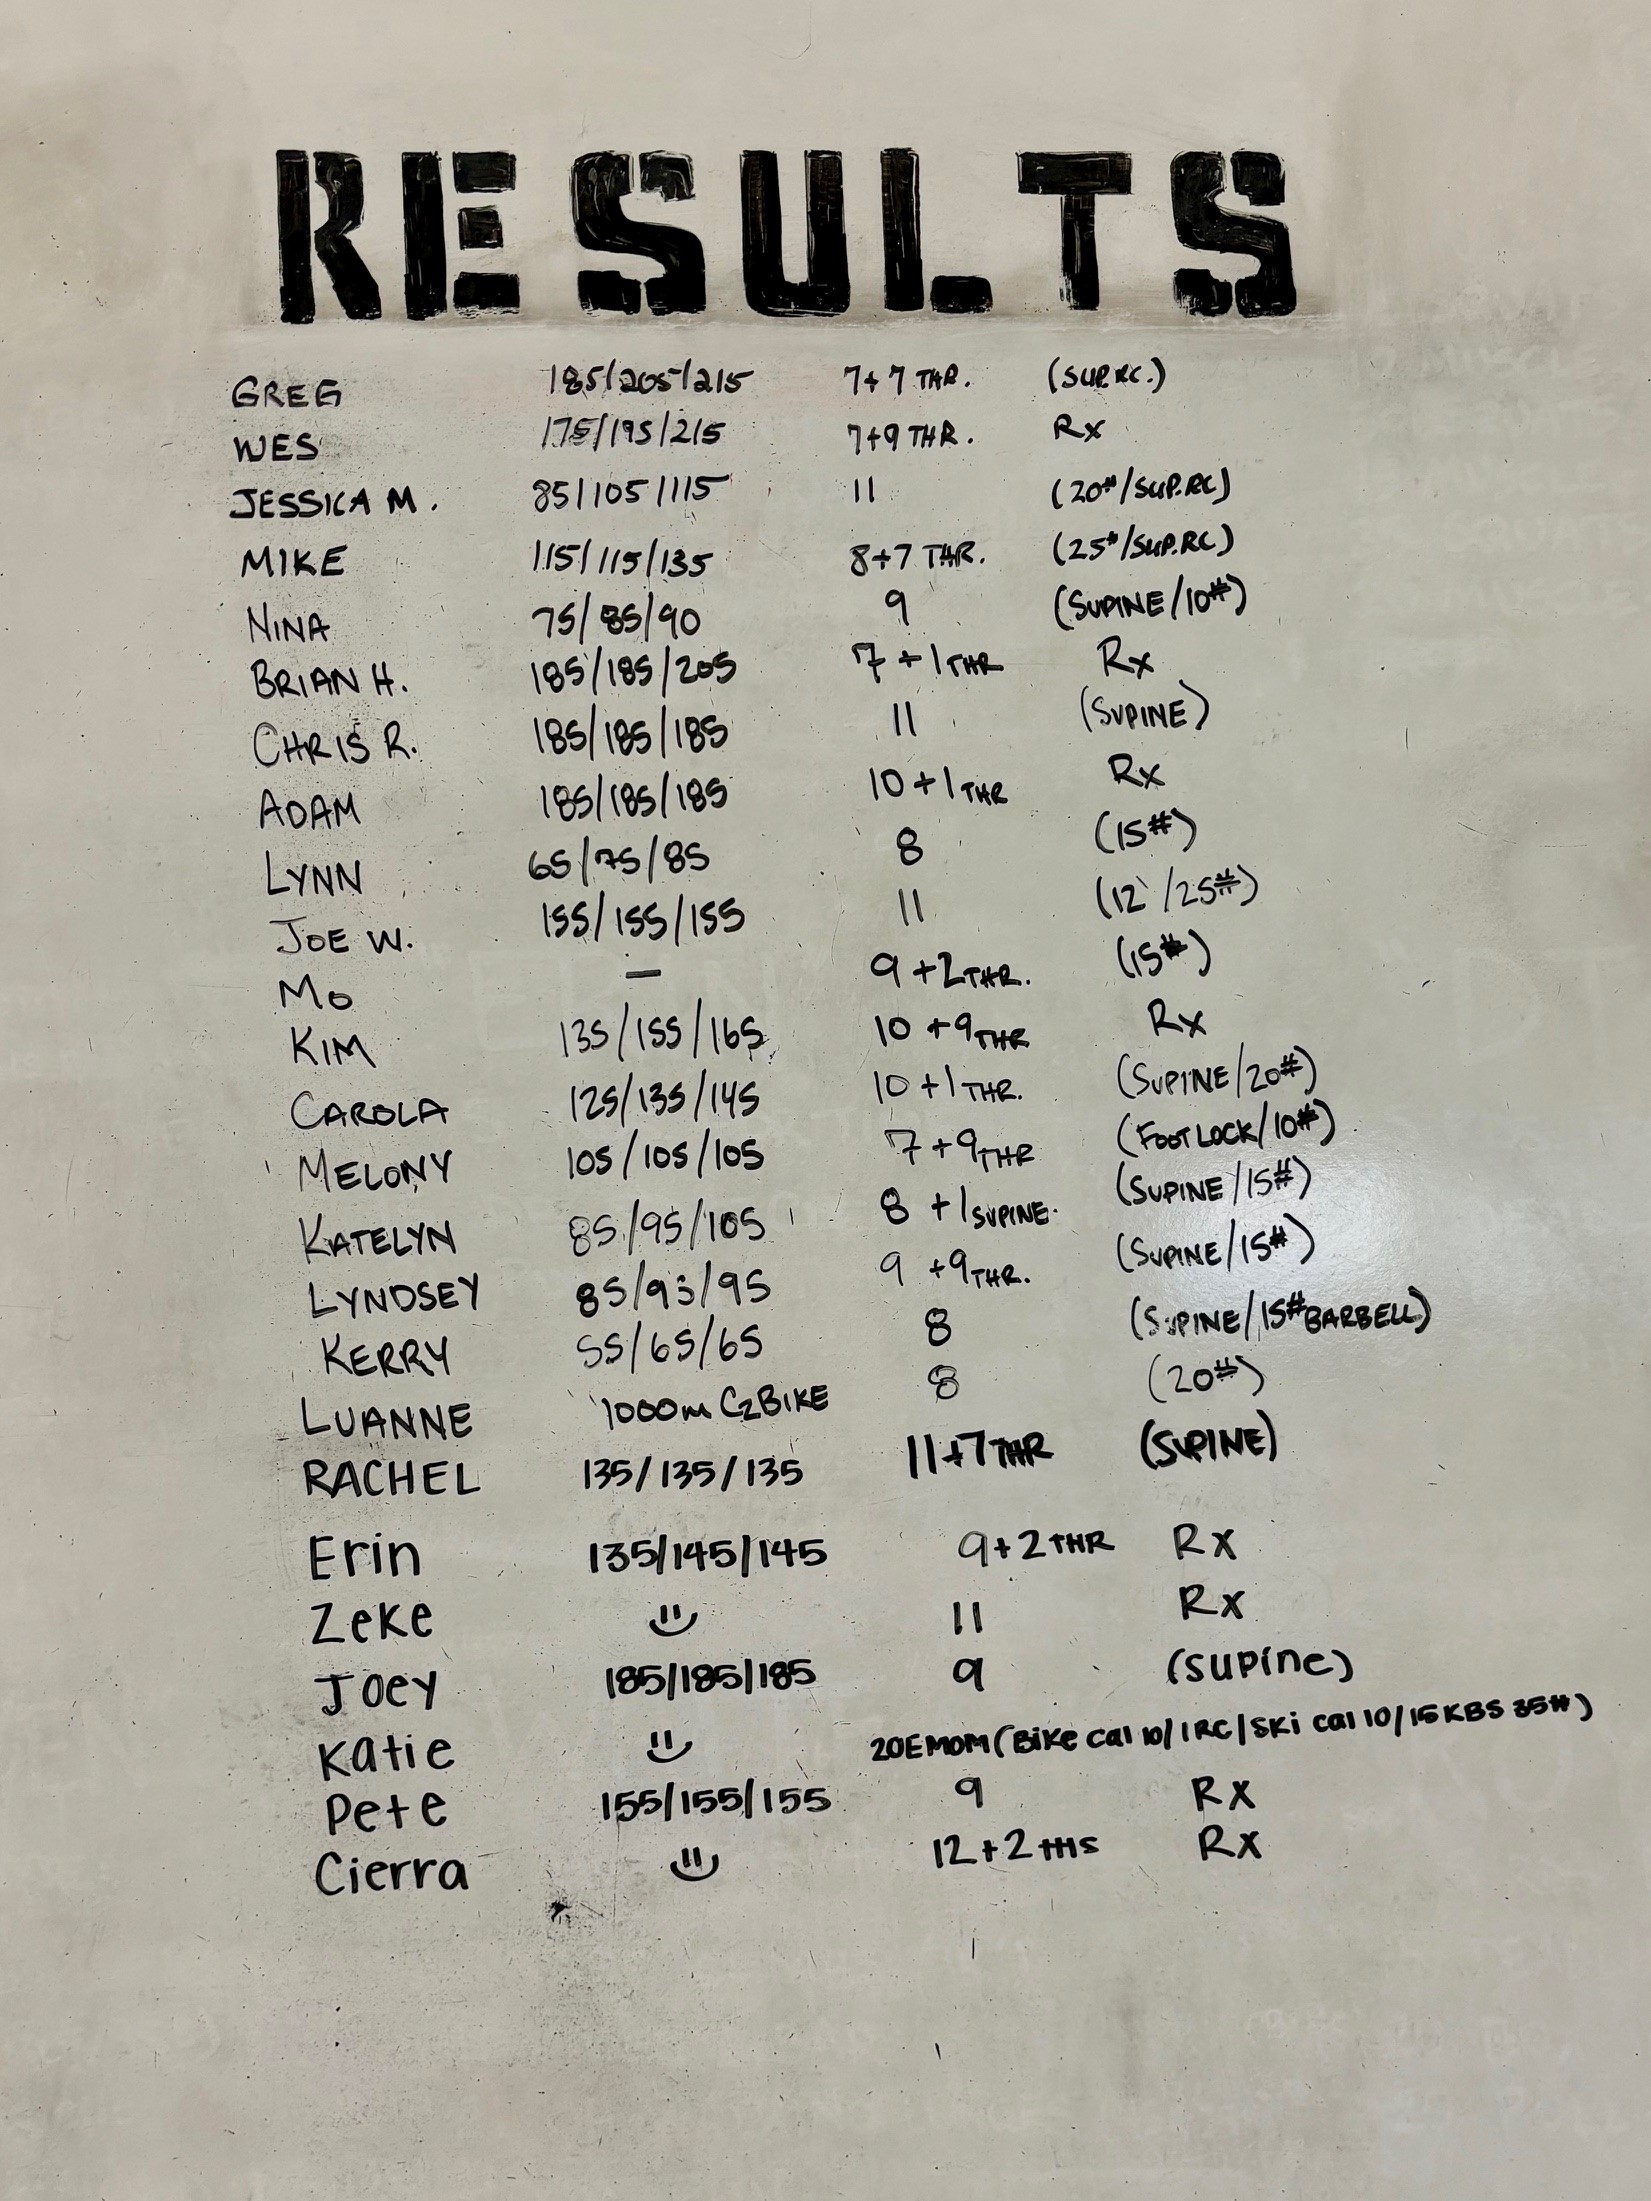 RESULTS
GREG 185/205/215 7+7 THR. (SUP.RC.)
WES 175/195/215 7+9 THR. Rx
JESSICA M. 85/105/115 11 (20#/SUP.RC)
MIKE 115/115/135 8+7 THR. (25#/SUP.RC)
NINA 75/85/90 9 (SUPINE/10#)
BRIAN H. 185/185/205 7+1 THR Rx
CHRIS R. 185/185/185 11 (SUPINE)
ADAM 185/185/185 10+1 THR Rx
LYNN 65/75/85 8 (15#)
JOE W. 155/155/155 11 (12'/25#)
MO — 9+2 THR. (15#)
KIM 135/155/165 10+9 THR Rx
CAROLA 125/135/145 10+1 THR. (SUPINE/20#)
MELONY 105/105/105 7+9 THR (FOOT LOCK/10#)
KATELYN 85/95/105 8+1 SUPINE. (SUPINE/15#)
LYNDSEY 85/93/95 9+9 THR. (SUPINE/15#)
KERRY 55/65/65 8 (SUPINE/15# BARBELL)
LUANNE 1000m C2 BIKE 8 (20#)
RACHEL 135/135/135 11+7 THR (SUPINE)
Erin 135/145/145 9+2 THR Rx
Zeke 11 Rx
Joey 185/185/185 9 (supine)
Katie 20EMOM (Bike cal 10/1RC/SKi cal 10/15 KBS 35#)
Pete 155/155/155 9 Rx
Cierra 12+2 Rx